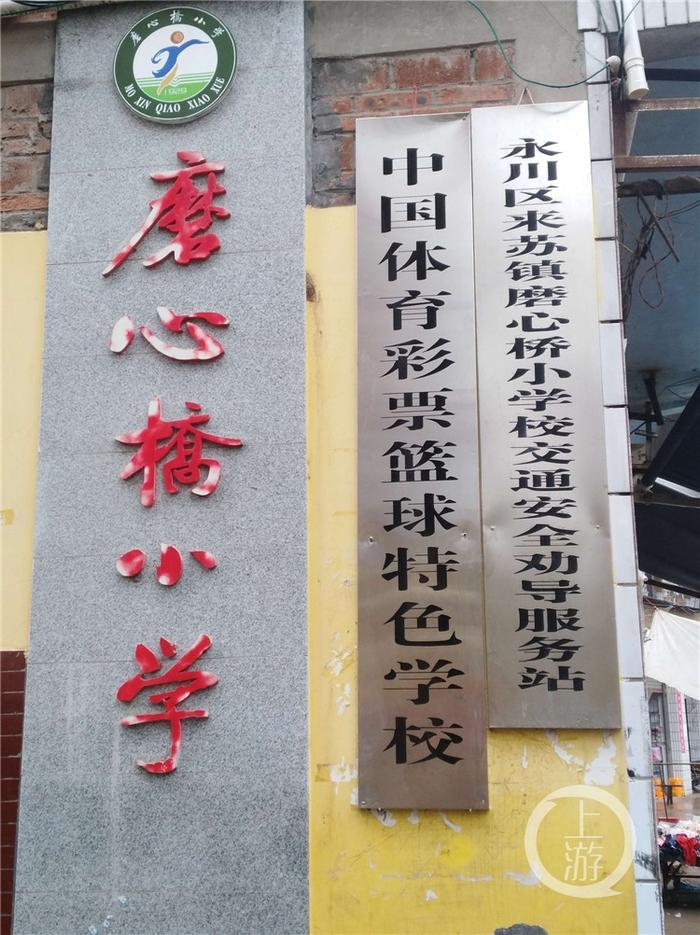 磨心橋小学
1929
MO XIN QIAO XIAO XUE
磨心橋小学
中国体育彩票篮球特色学校
永川区来苏镇磨心桥小学校交通安全劝导服务站
上游